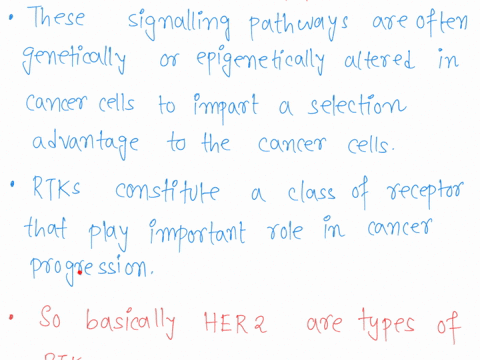 • These signalling pathways are often
genetically or epigenetically altered in
cancer cells to impart a selection
advantage to the cancer cells.
• RTKs constitute a class of receptor
that play important role in cancer
progression.
• So basically HER2 are types of
RTK